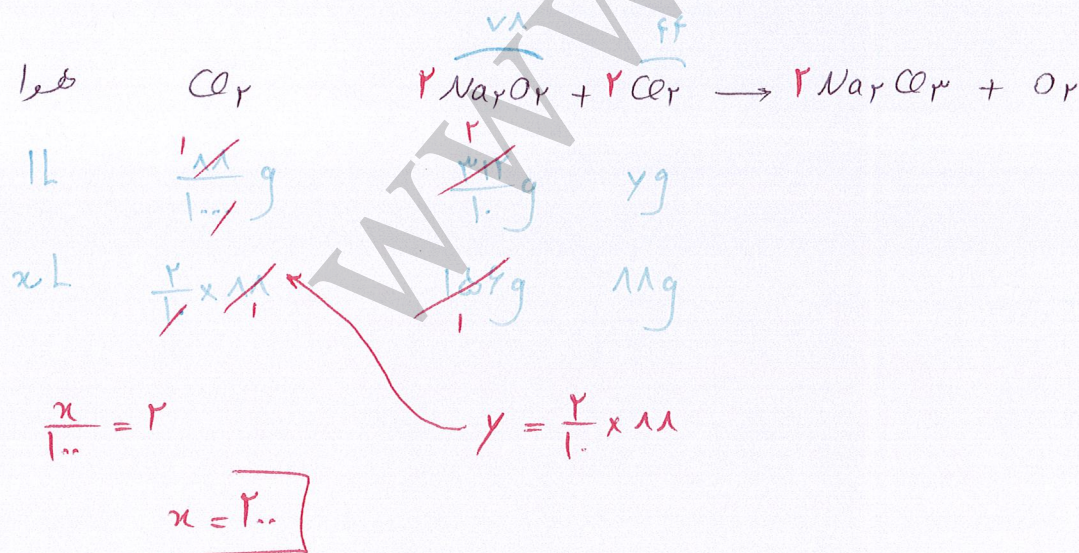 ۷۸ ۴۴
هوا CO۲ ۲ Na۲O۲ + ۲ CO۲ → ۲ Na۲CO۳ + O۲
۱L ۱ ۸۸/۱۰۰۰ g ۲ ۳۱۲/۱۰ g yg
xL ۲/۱۰ × ۸۸ ۱ ۱۵۶g ۱ ۸۸g
x/۱۰۰ = ۲ y = ۲/۱۰ × ۸۸
x = ۲۰۰
WWW